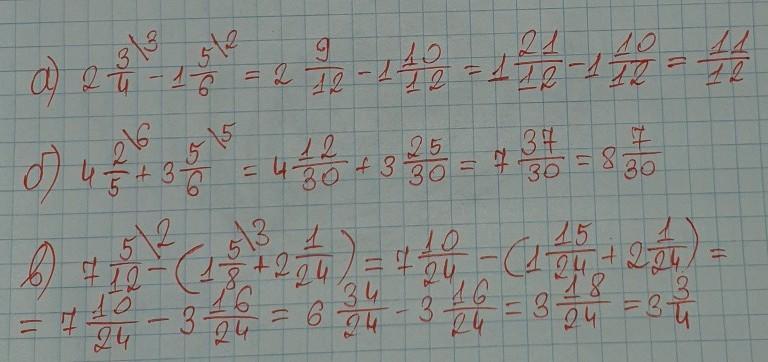 а) 2 3/4\3 − 1 5/6\2 = 2 9/12 − 1 10/12 = 1 21/12 − 1 10/12 = 11/12
б) 4 2/5\6 + 3 5/6\5 = 4 12/30 + 3 25/30 = 7 37/30 = 8 7/30
в) 7 5/12\2 − (1 5/8\3 + 2 1/24) = 7 10/24 − (1 15/24 + 2 1/24) =
= 7 10/24 − 3 16/24 = 6 34/24 − 3 16/24 = 3 18/24 = 3 3/4